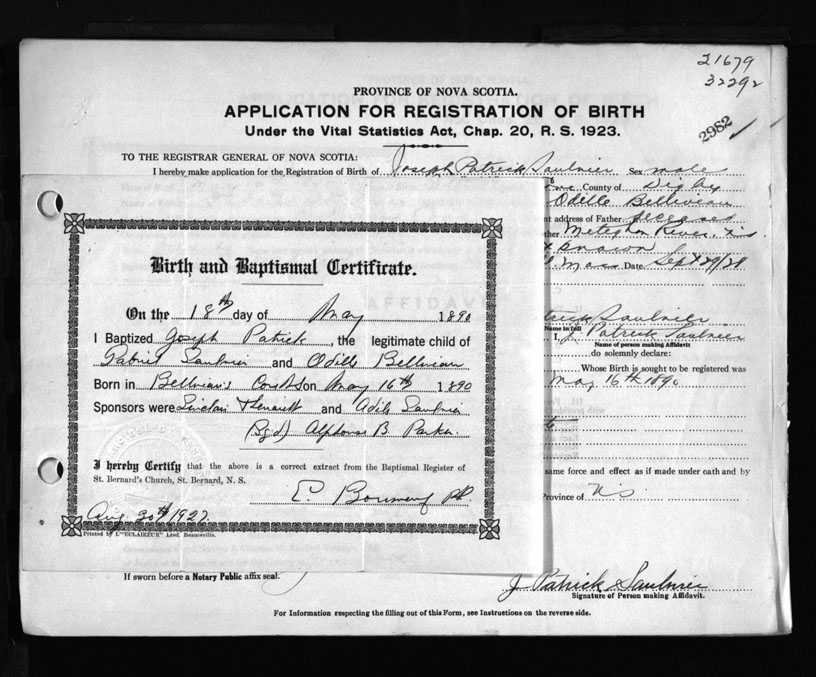 21679
32292
2982
PROVINCE OF NOVA SCOTIA.
APPLICATION FOR REGISTRATION OF BIRTH
Under the Vital Statistics Act, Chap. 20, R. S. 1923.
TO THE REGISTRAR GENERAL OF NOVA SCOTIA:
I hereby make application for the Registration of Birth of Joseph Patrick Saulnier Sex male
County of Digby
Odille Belliveau
nt address of Father deceased
ther Meteghan River, N.S.
known
Mass Date Sept 29/28
trick Saulnier
Name in full
I, J. Patrick Saulnier
Name of person making Affidavit
do solemnly declare:
Whose Birth is sought to be registered was
May 16th 1890
same force and effect as if made under oath and by
Province of N.S.
Birth and Baptismal Certificate.
On the 18th day of May 1890
I Baptized Joseph Patrick, the legitimate child of
Saulnier and Odille
Born in on May 16th 1890
Sponsors were and Saulnier
(Sgd) Alphonse B. Parker.
I hereby Certify that the above is a correct extract from the Baptismal Register of
St. Bernard's Church, St. Bernard, N. S.
E.
Aug 30th 1927
Printed by L'"ECLAIREUR" Lted. Beauceville.
If sworn before a Notary Public affix seal.
J Patrick Saulnier
Signature of Person making Affidavit.
For Information respecting the filling out of this Form, see Instructions on the reverse side.